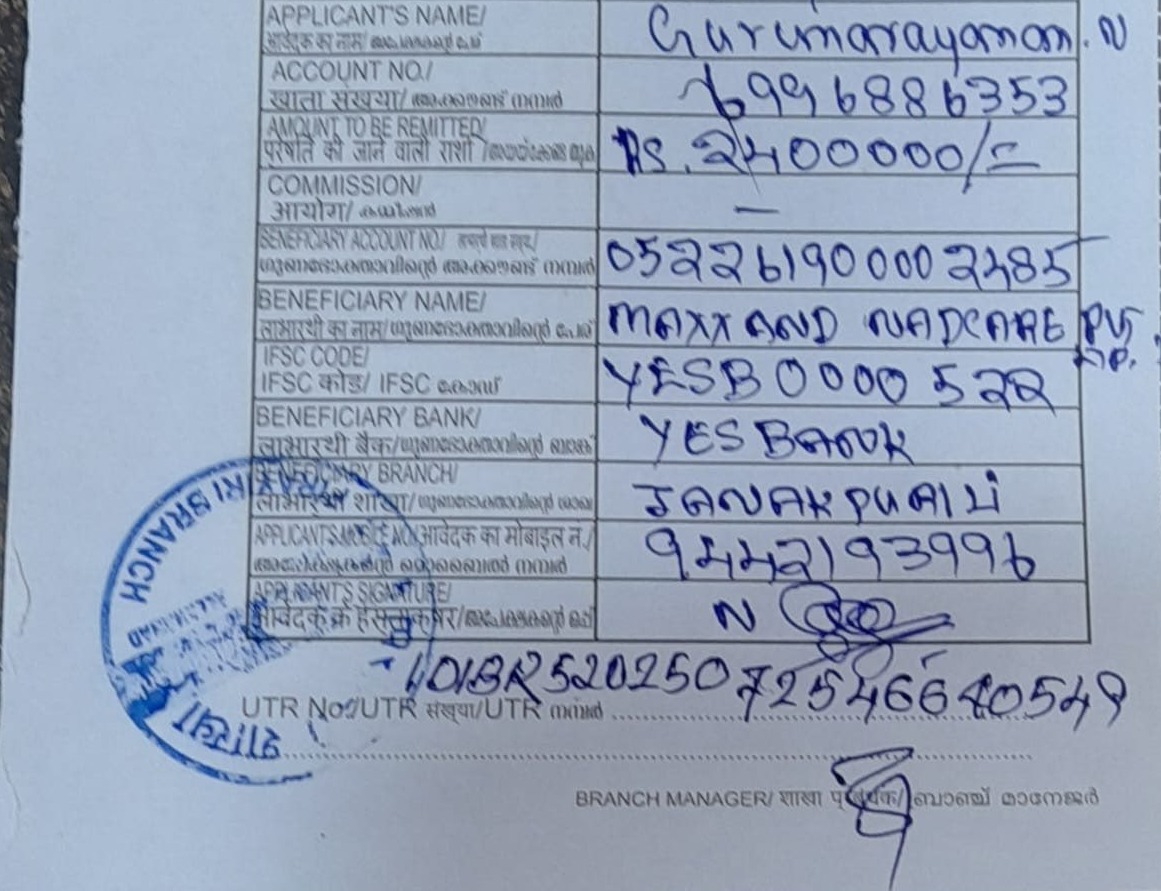 APPLICANT'S NAME/ Gurumarayanan. N
आवेदक का नाम/ അപേക്ഷകന്റെ പേര്
ACCOUNT NO./ 6996886353
खाता संख्या/ അക്കൌണ്ട് നമ്പർ
AMOUNT TO BE REMITTED/ RS. 2400000/=
प्रेषित की जाने वाली राशी
COMMISSION/ —
आयोग/ കമ്മീഷൻ
BENEFICIARY ACCOUNT NO./ 052261900002485
ഗുണഭോക്താവിന്റെ അക്കൌണ്ട് നമ്പർ
BENEFICIARY NAME/ MAXX AND NADCARE PVT
लाभारथी का नाम/ഗുണഭോക്താവിന്റെ പേര് LTD.
IFSC CODE/ YESB0000522
IFSC कोड/ IFSC കോഡ്
BENEFICIARY BANK/ YES BANK
लाभारथी बैंक/ഗുണഭോക്താവിന്റെ ബാങ്ക്
BENEFICIARY BRANCH/ JANAKPURI
लाभारथी शाखा/ഗുണഭോക്താവിന്റെ ശാഖ
APPLICANT'S MOBILE NO./आवेदक का मोबाइल न./ 9442193996
അപേക്ഷകന്റെ മൊബൈൽ നമ്പർ
APPLICANT'S SIGNATURE/ N
आवेदक के हस्ताक्षर/അപേക്ഷകന്റെ ഒപ്പ്
UTR No:/UTR संख्या/UTR നമ്പർ
BRANCH MANAGER/ शाखा प्रबंधक/ ബ്രാഞ്ച് മാനേജർ
RI BRANCH
शाखा